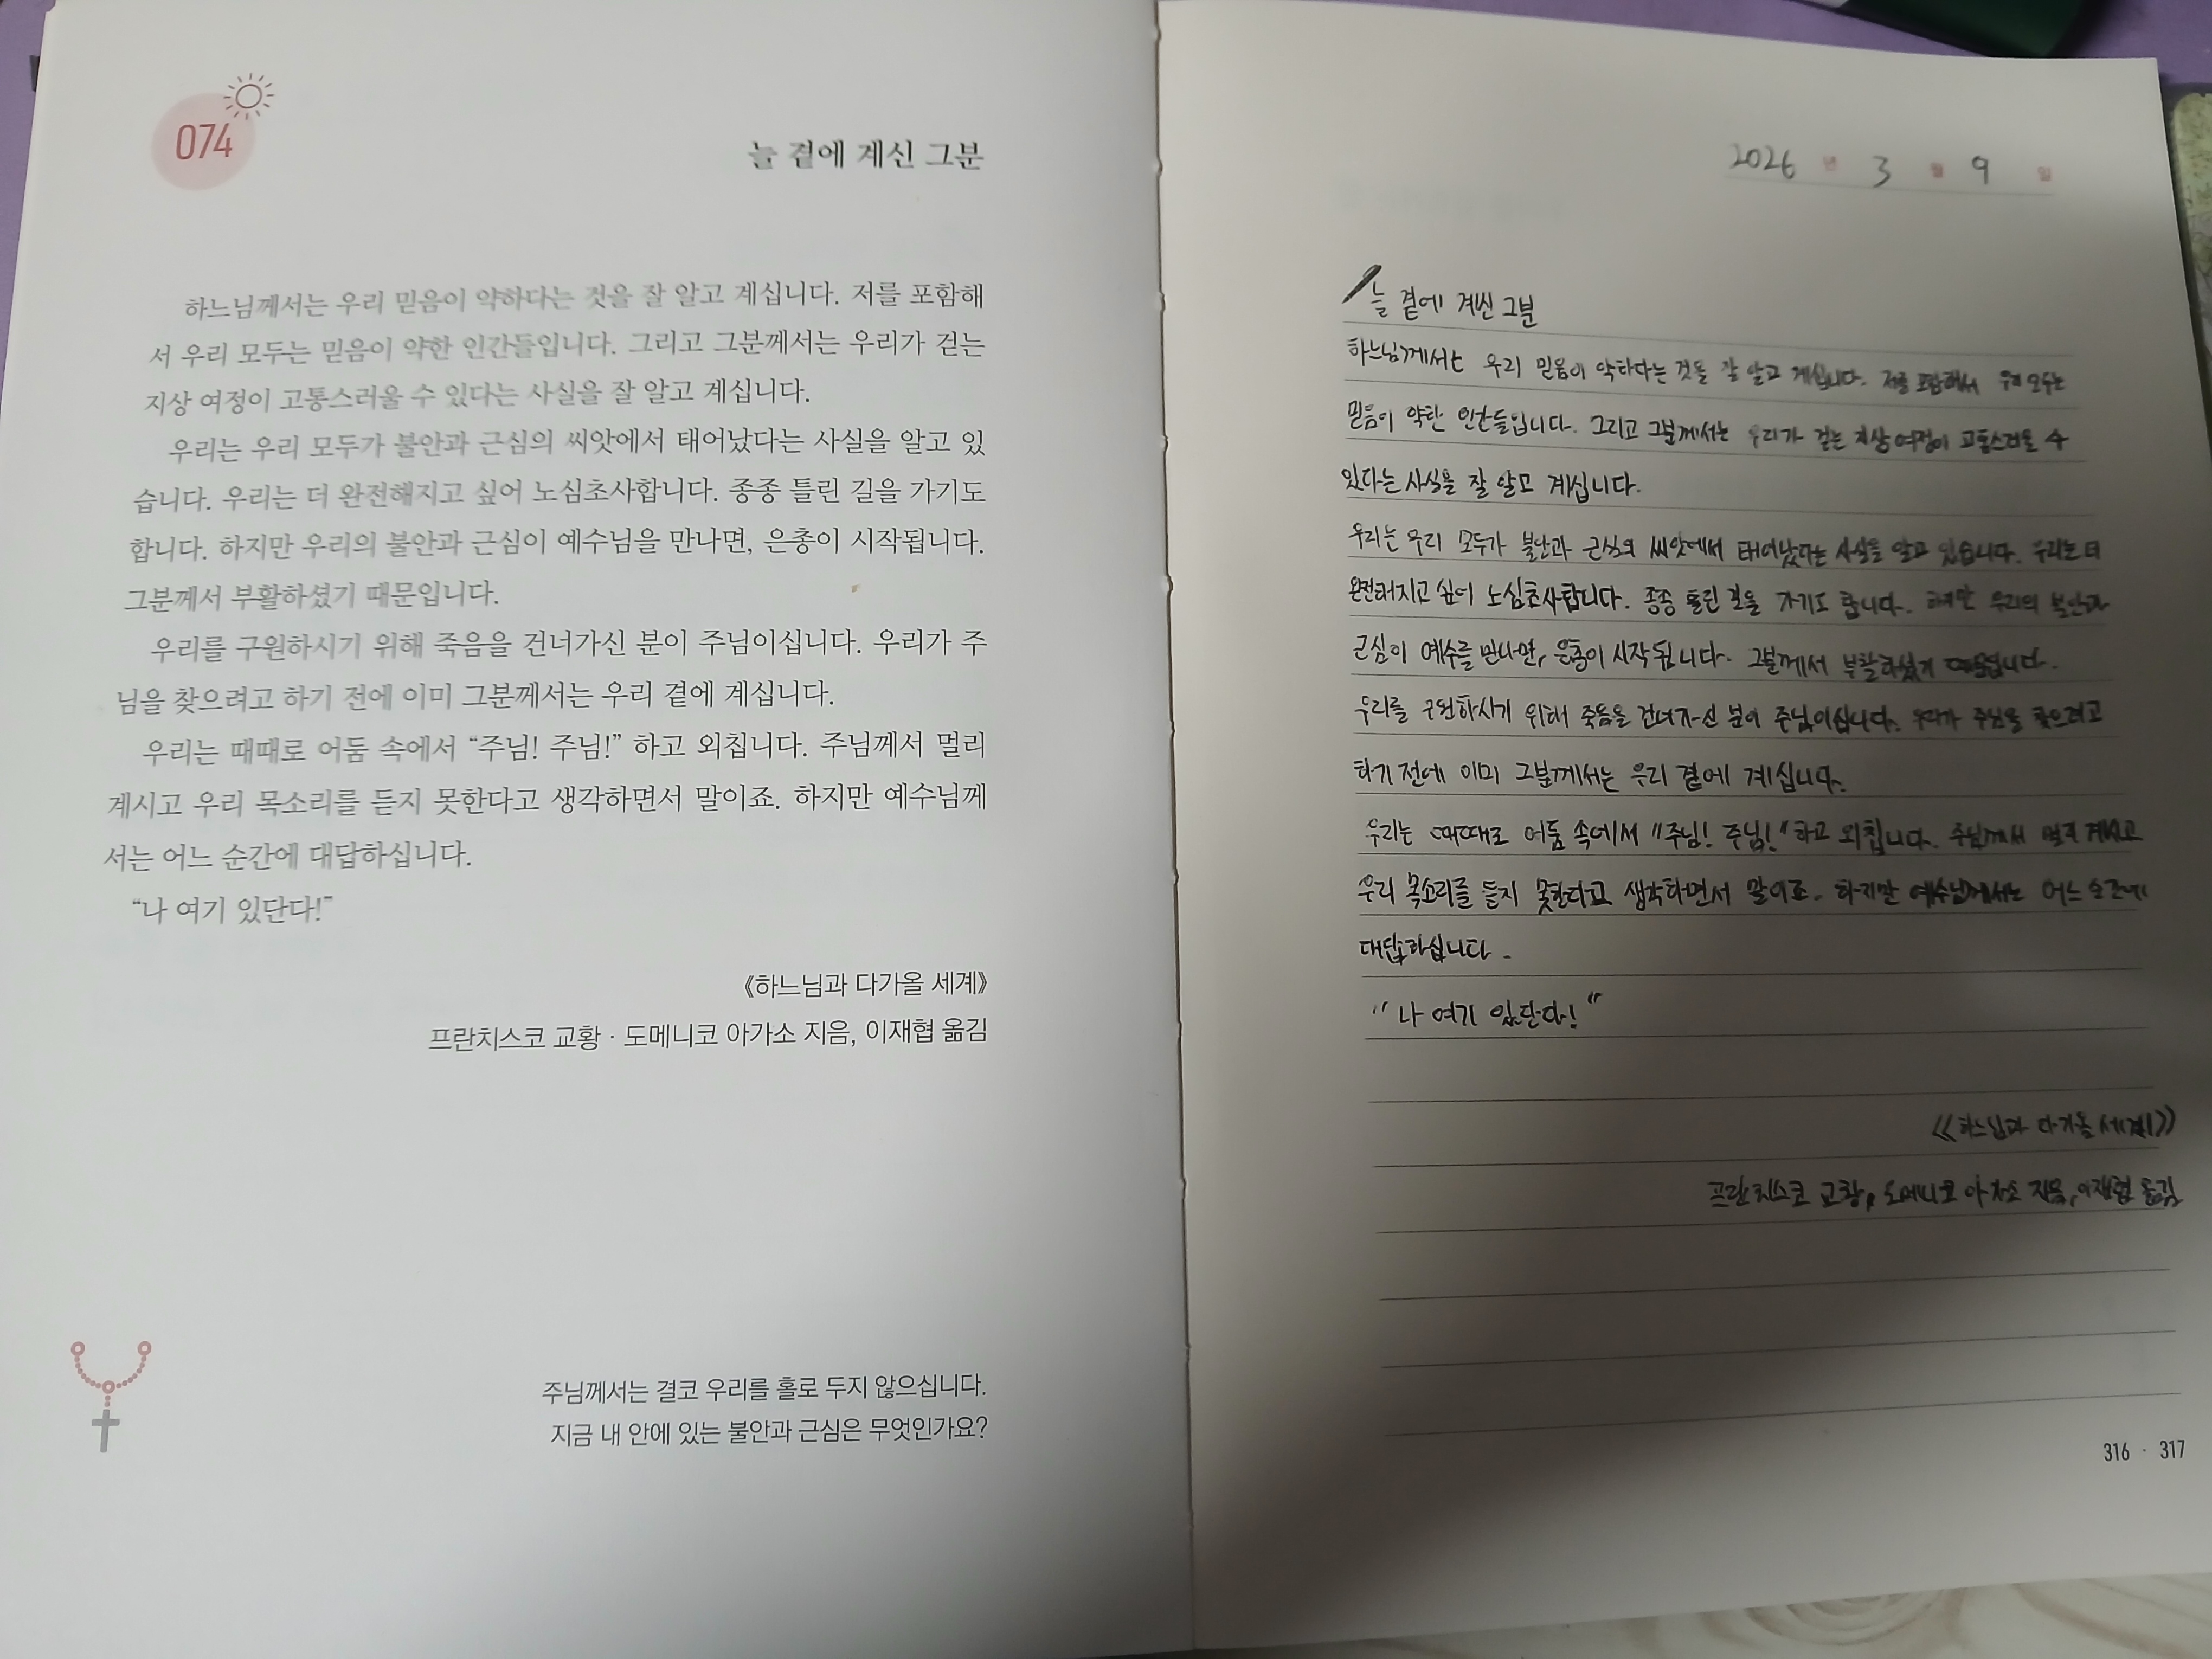 074
늘 곁에 계신 그분
하느님께서는 우리 믿음이 약하다는 것을 잘 알고 계십니다. 저를 포함해
서 우리 모두는 믿음이 약한 인간들입니다. 그리고 그분께서는 우리가 걷는
지상 여정이 고통스러울 수 있다는 사실을 잘 알고 계십니다.
우리는 우리 모두가 불안과 근심의 씨앗에서 태어났다는 사실을 알고 있
습니다. 우리는 더 완전해지고 싶어 노심초사합니다. 종종 틀린 길을 가기도
합니다. 하지만 우리의 불안과 근심이 예수님을 만나면, 은총이 시작됩니다.
그분께서 부활하셨기 때문입니다.
우리를 구원하시기 위해 죽음을 건너가신 분이 주님이십니다. 우리가 주
님을 찾으려고 하기 전에 이미 그분께서는 우리 곁에 계십니다.
우리는 때때로 어둠 속에서 “주님! 주님!” 하고 외칩니다. 주님께서 멀리
계시고 우리 목소리를 듣지 못한다고 생각하면서 말이죠. 하지만 예수님께
서는 어느 순간에 대답하십니다.
“나 여기 있단다!”
《하느님과 다가올 세계》
프란치스코 교황 · 도메니코 아가소 지음, 이재협 옮김
주님께서는 결코 우리를 홀로 두지 않으십니다.
지금 내 안에 있는 불안과 근심은 무엇인가요?
2026 년 3 월 9 일
늘 곁에 계신 그분
하느님께서는 우리 믿음이 약하다는 것을 잘 알고 계십니다. 저를 포함해서 우리 모두는
믿음이 약한 인간들입니다. 그리고 그분께서는 우리가 걷는 지상 여정이 고통스러울 수
있다는 사실을 잘 알고 계십니다.
우리는 우리 모두가 불안과 근심의 씨앗에서 태어났다는 사실을 알고 있습니다. 우리는 더
완전해지고 싶어 노심초사합니다. 종종 틀린 길을 가기도 합니다. 하지만 우리의 불안과
근심이 예수를 만나면, 은총이 시작됩니다. 그분께서 부활하셨기 때문입니다.
우리를 구원하시기 위해 죽음을 건너가신 분이 주님이십니다. 우리가 주님을 찾으려고
하기 전에 이미 그분께서는 우리 곁에 계십니다.
우리는 때때로 어둠 속에서 "주님! 주님!" 하고 외칩니다. 주님께서 멀리 계시고
우리 목소리를 듣지 못한다고 생각하면서 말이죠. 하지만 예수님께서는 어느 순간에
대답하십니다.
"나 여기 있단다!"
《하느님과 다가올 세계》
프란치스코 교황, 도메니코 아가소 지음, 이재협 옮김
316 · 317